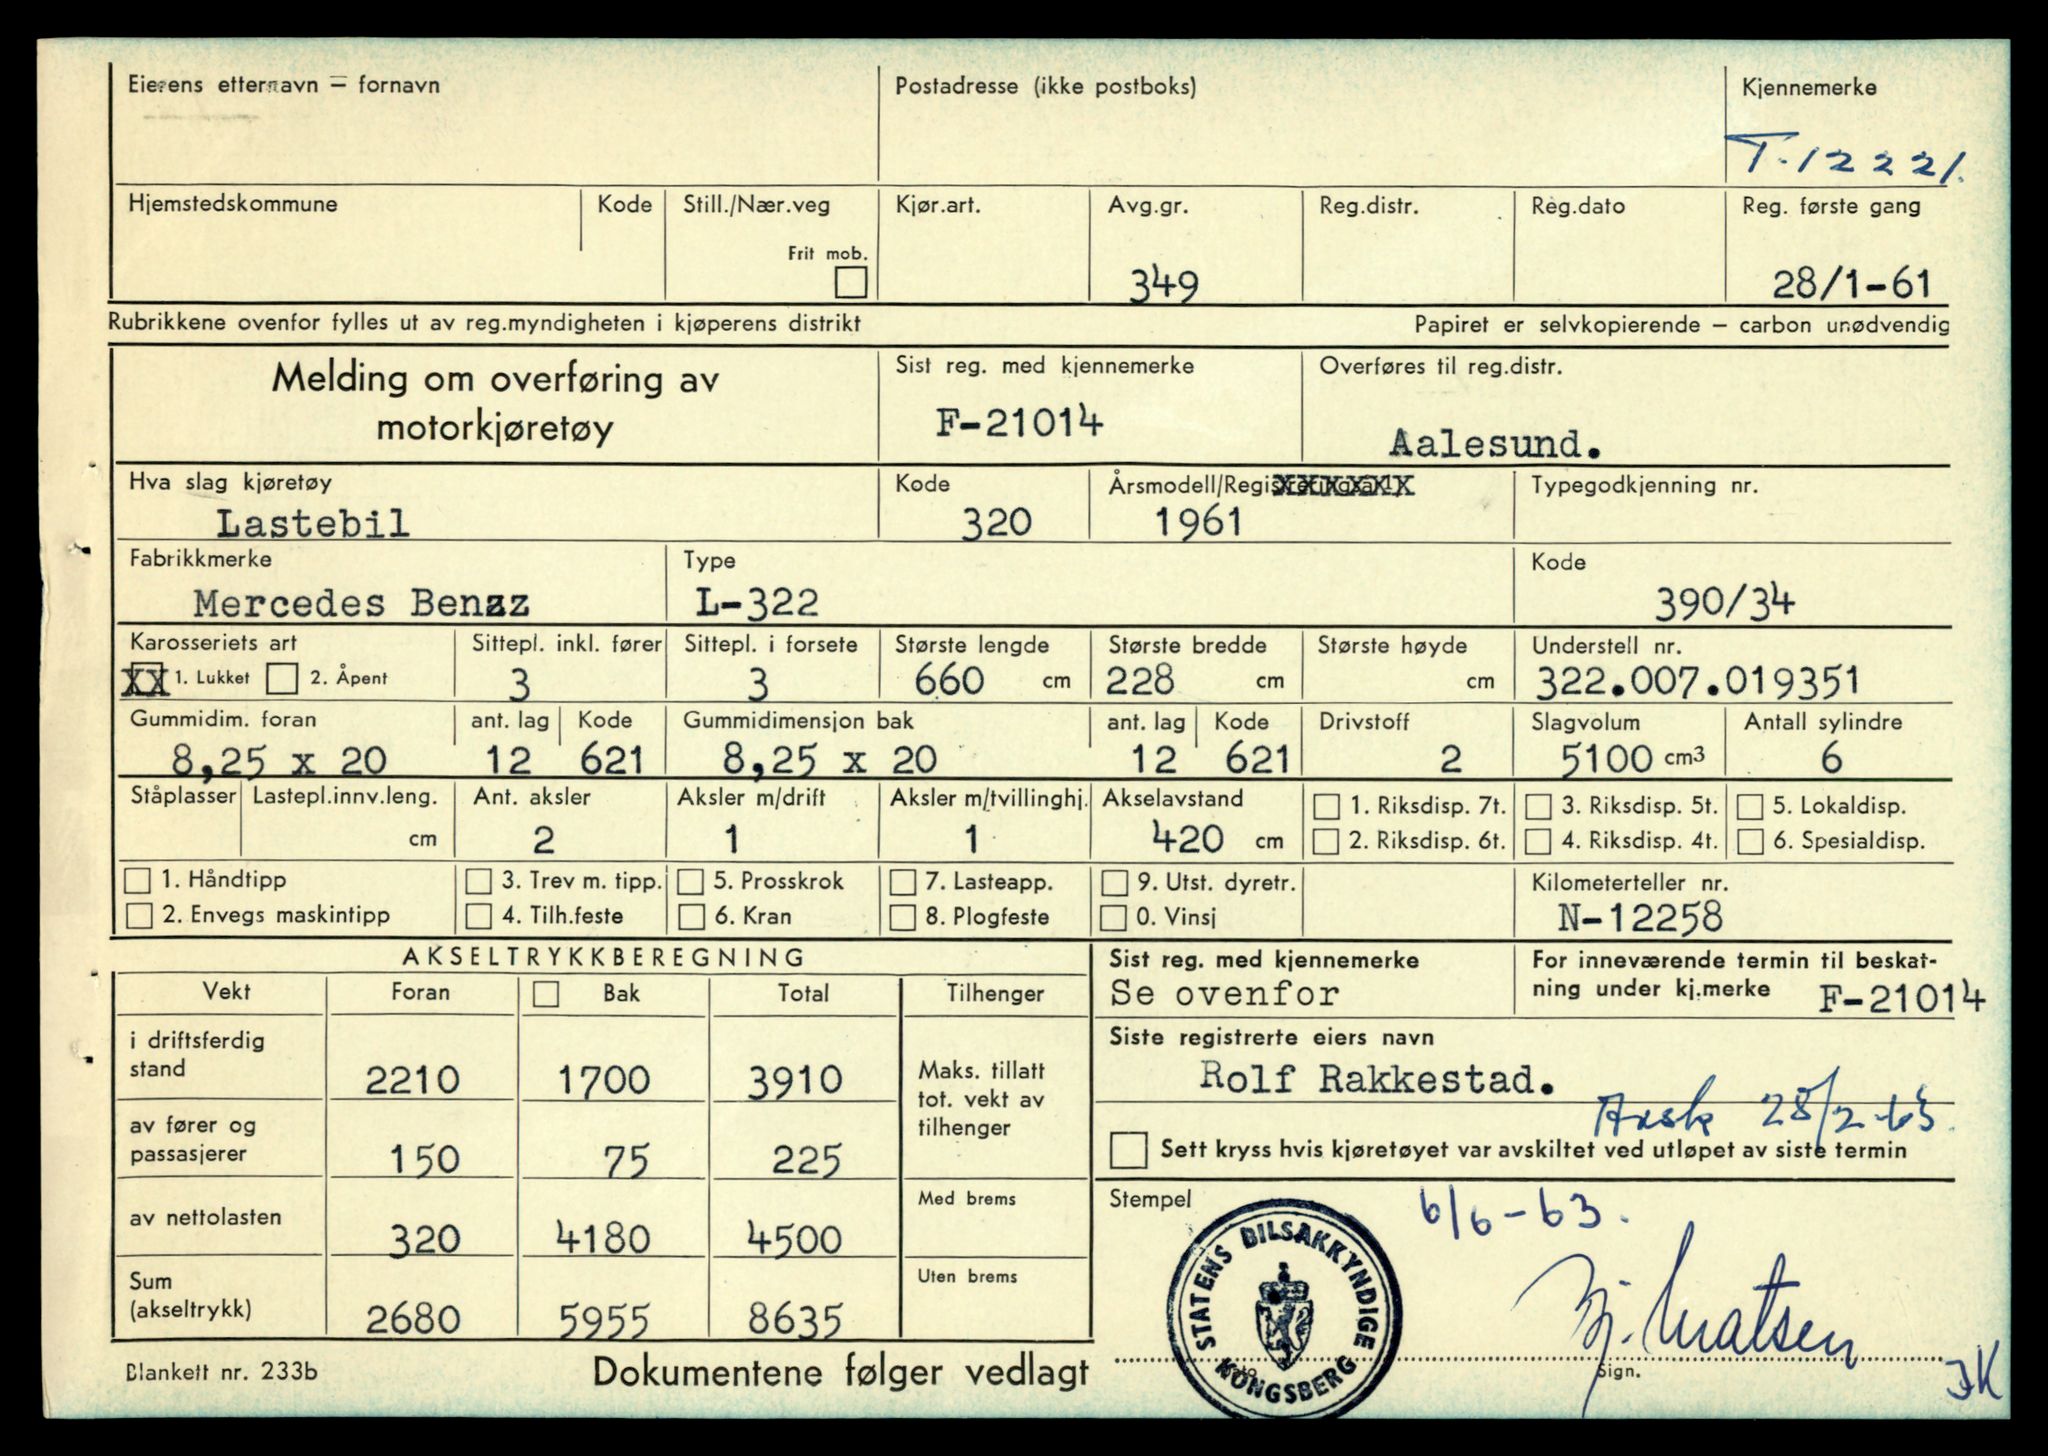 Eierens etternavn – fornavn
Postadresse (ikke postboks)
Kjennemerke
T.12221.
Hjemstedskommune
Kode
Still./Nær.veg
Frit mob.
Kjør.art.
Avg.gr.
349
Reg.distr.
Reg.dato
Reg. første gang
28/1-61
Rubrikkene ovenfor fylles ut av reg.myndigheten i kjøperens distrikt
Papiret er selvkopierende – carbon unødvendig
Melding om overføring av
motorkjøretøy
Sist reg. med kjennemerke
F-21014
Overføres til reg.distr.
Aalesund.
Hva slag kjøretøy
Lastebil
Kode
320
Årsmodell/Regis
1961
Typegodkjenning nr.
Fabrikkmerke
Mercedes Benz
Type
L-322
Kode
390/34
Karosseriets art
XX 1. Lukket 2. Åpent
Sittepl. inkl. fører
3
Sittepl. i forsete
3
Største lengde
660 cm
Største bredde
228 cm
Største høyde
cm
Understell nr.
322.007.019351
Gummidim. foran
8,25 x 20
ant. lag
12
Kode
621
Gummidimensjon bak
8,25 x 20
ant. lag
12
Kode
621
Drivstoff
2
Slagvolum
5100 cm³
Antall sylindre
6
Ståplasser
Lastepl.innv.leng.
cm
Ant. aksler
2
Aksler m/drift
1
Aksler m/tvillinghj.
1
Akselavstand
420 cm
1. Riksdisp. 7t.
2. Riksdisp. 6t.
3. Riksdisp. 5t.
4. Riksdisp. 4t.
5. Lokaldisp.
6. Spesialdisp.
1. Håndtipp
2. Envegs maskintipp
3. Trev m. tipp.
4. Tilh.feste
5. Prosskrok
6. Kran
7. Lasteapp.
8. Plogfeste
9. Utst. dyretr.
0. Vinsj
Kilometerteller nr.
N-12258
AKSELTRYKKBEREGNING
Vekt Foran Bak Total Tilhenger
i driftsferdig
stand
2210 1700 3910
av fører og
passasjerer
150 75 225
av nettolasten
320 4180 4500
Sum
(akseltrykk)
2680 5955 8635
Maks. tillatt
tot. vekt av
tilhenger
Med brems
Uten brems
Sist reg. med kjennemerke
Se ovenfor
For inneværende termin til beskat-
ning under kj.merke F-21014
Siste registrerte eiers navn
Rolf Rakkestad.
Avsk 28/2-63.
Sett kryss hvis kjøretøyet var avskiltet ved utløpet av siste termin
Stempel
6/6-63.
STATENS BILSAKKYNDIGE
KONGSBERG
Bj. Matsen
sign.
JK
Blankett nr. 233b
Dokumentene følger vedlagt